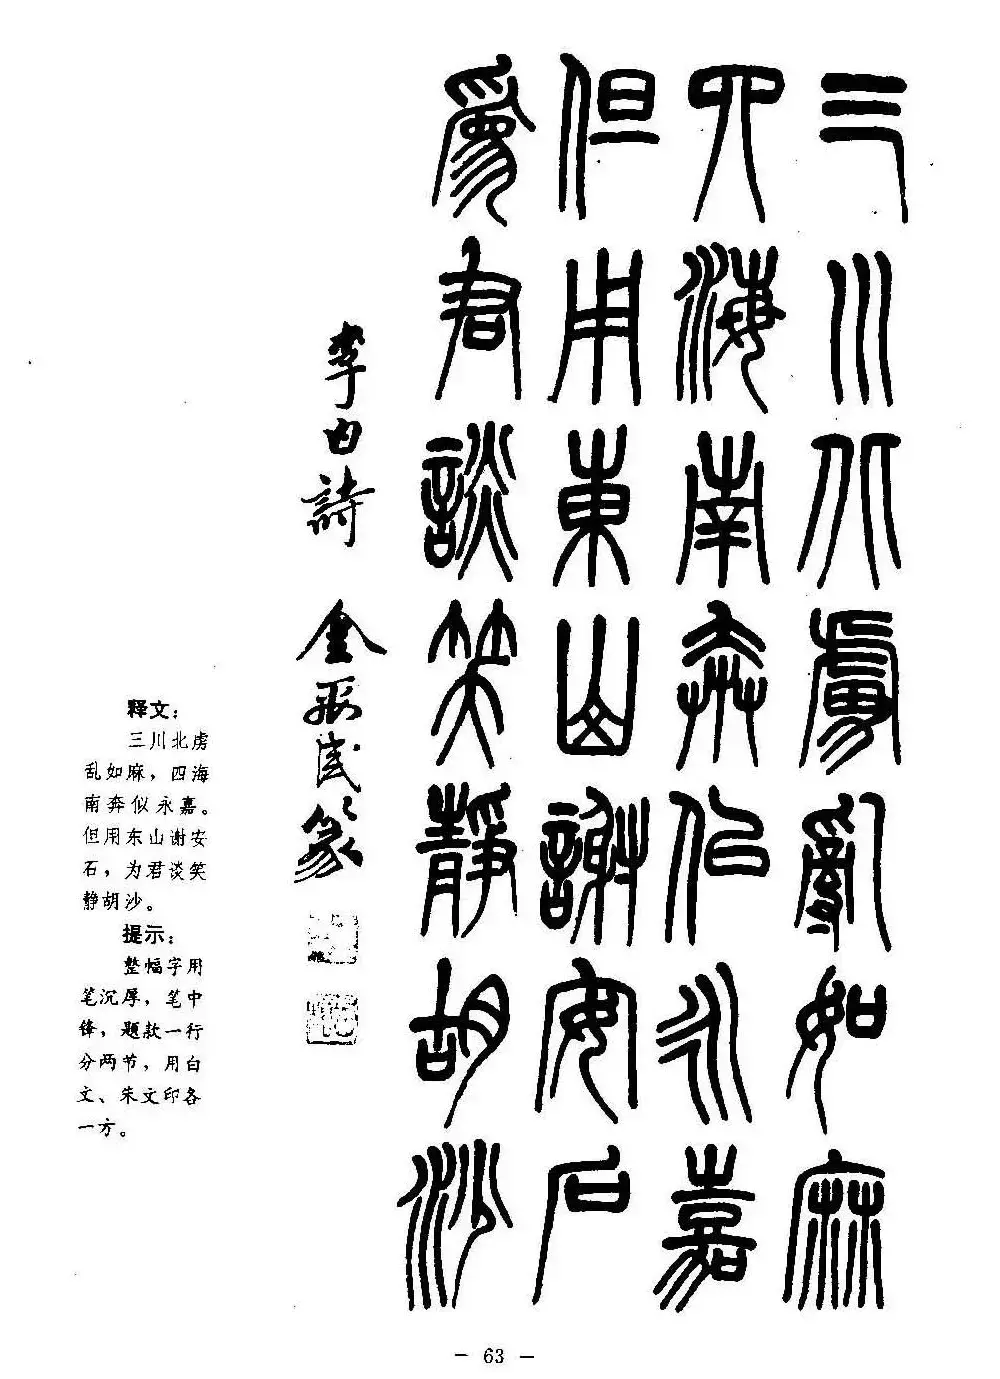 三川北虜亂如麻
四海南奔似永嘉
但用東山謝安石
爲君談笑靜胡沙
李白詩
金 篆
释文：
三川北虏
乱如麻，四海
南奔似永嘉。
但用东山谢安
石，为君谈笑
静胡沙。
提示：
整幅字用
笔沉厚，笔中
锋，题款一行
分两节，用白
文、朱文印各
一方。
— 63 —